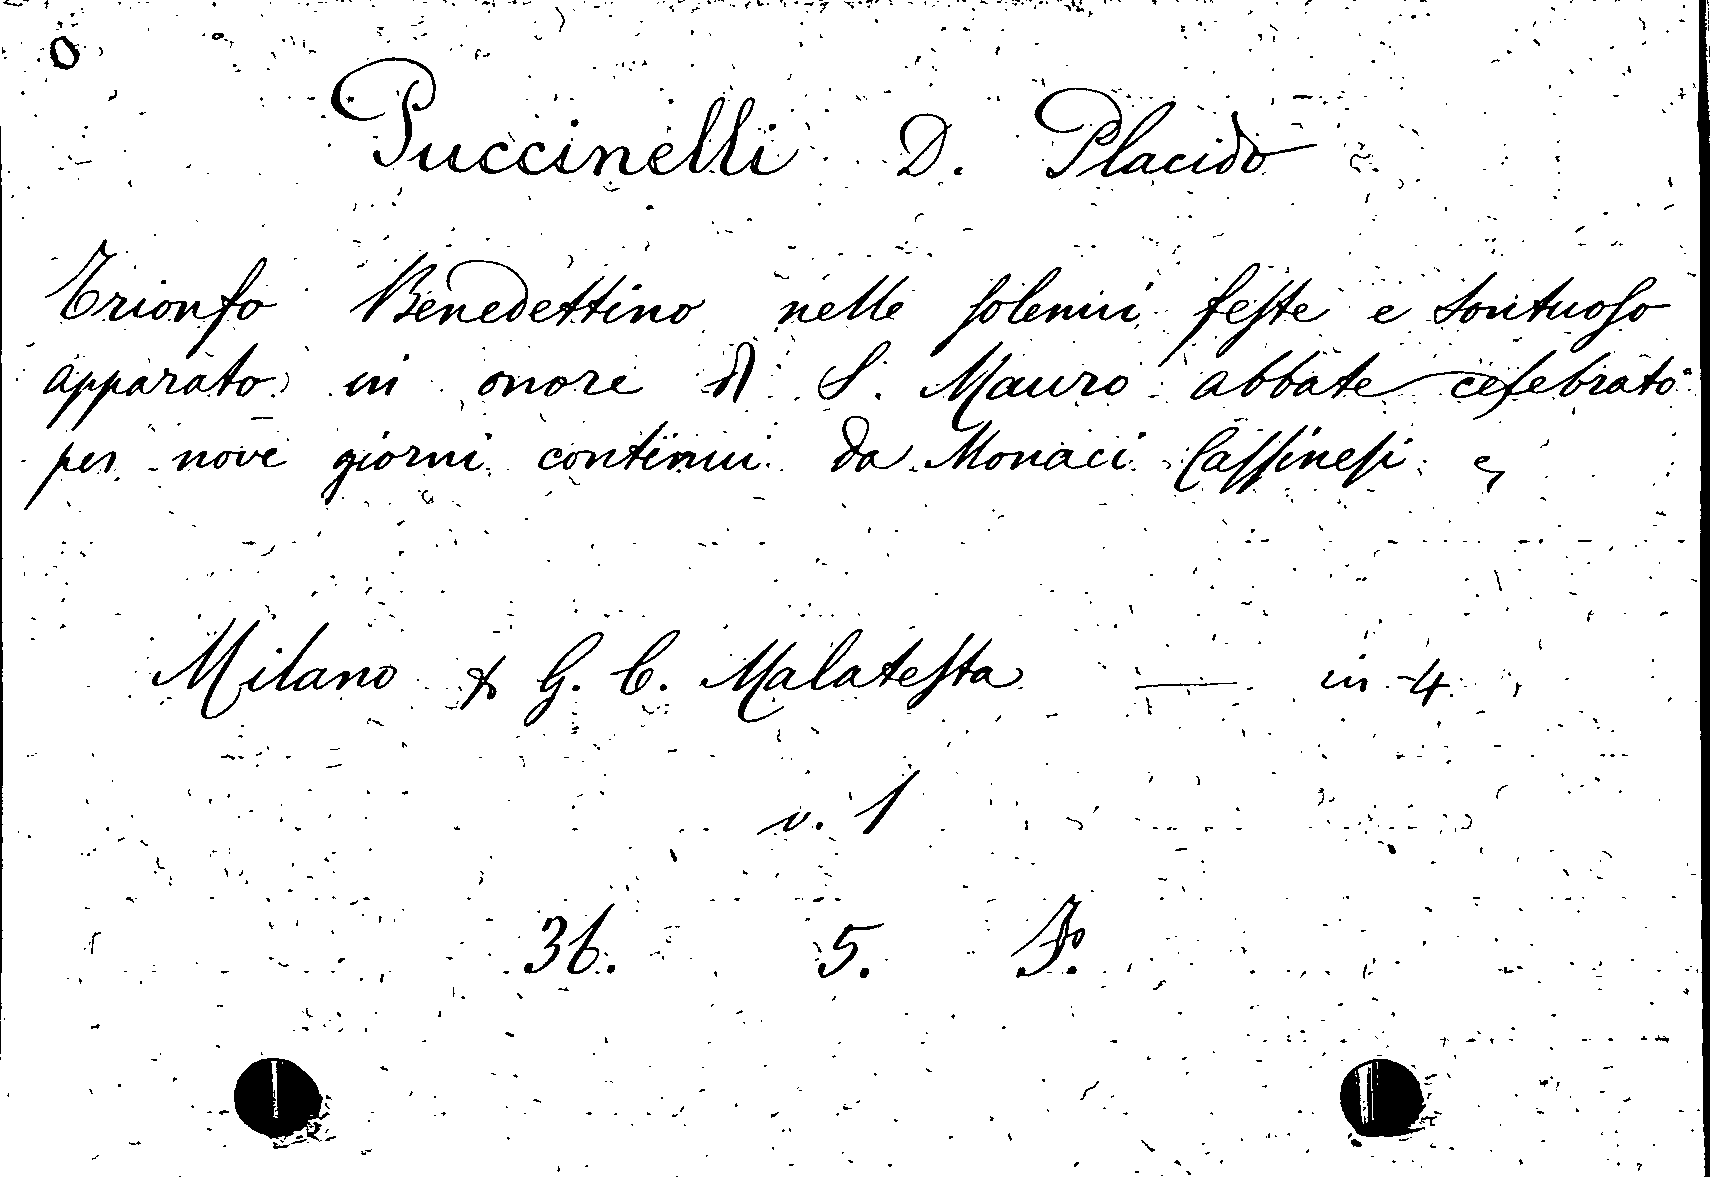 Puccinelli D. Placido
Trionfo Benedettino nelle solenni feste e sontuoso
apparato in onore di S. Mauro abbate celebrato
per nove giorni continui da Monaci Cassinesi
Milano G. C. Malatesta — in 4
v. 1
36. 5.